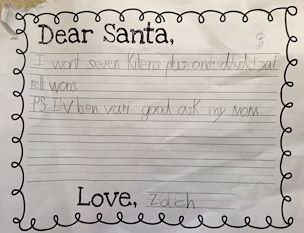 Dear Santa,
I wont seven Kitens plus one
rell wons.
PS. I V ben vari good ask my Mom.
Love, Zach